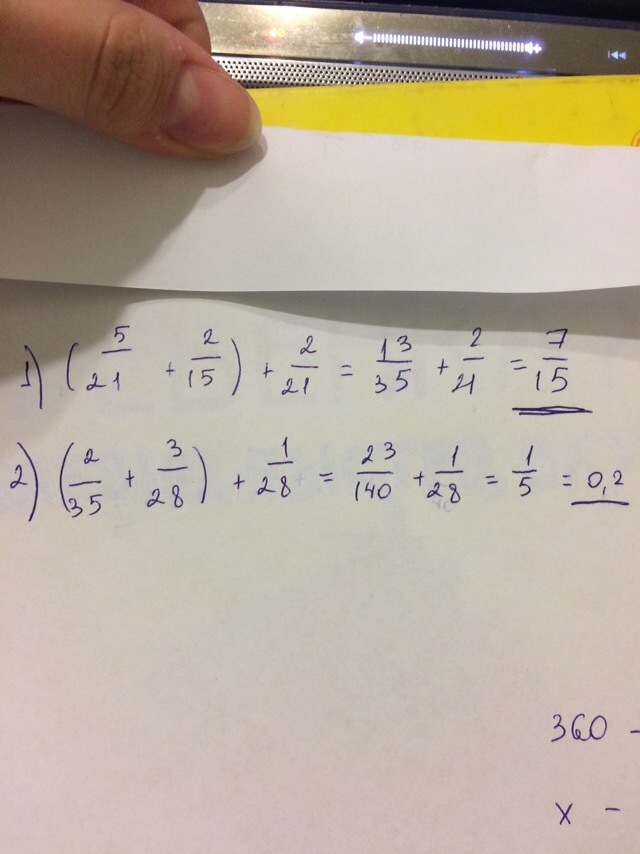 1) (5/21 + 2/15) + 2/21 = 13/35 + 2/21 = 7/15
2) (2/35 + 3/28) + 1/28 = 23/140 + 1/28 = 1/5 = 0,2
360 -
x -